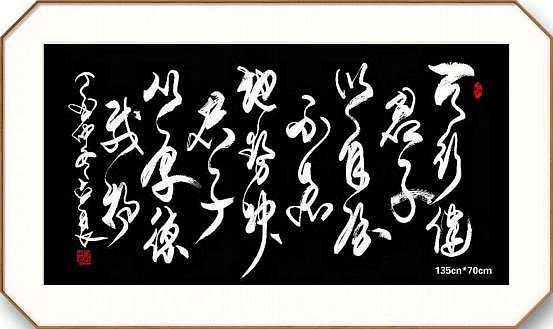 天行健
君子
以自强
不息
地势坤
君子
以厚德
载物
135cn*70cm